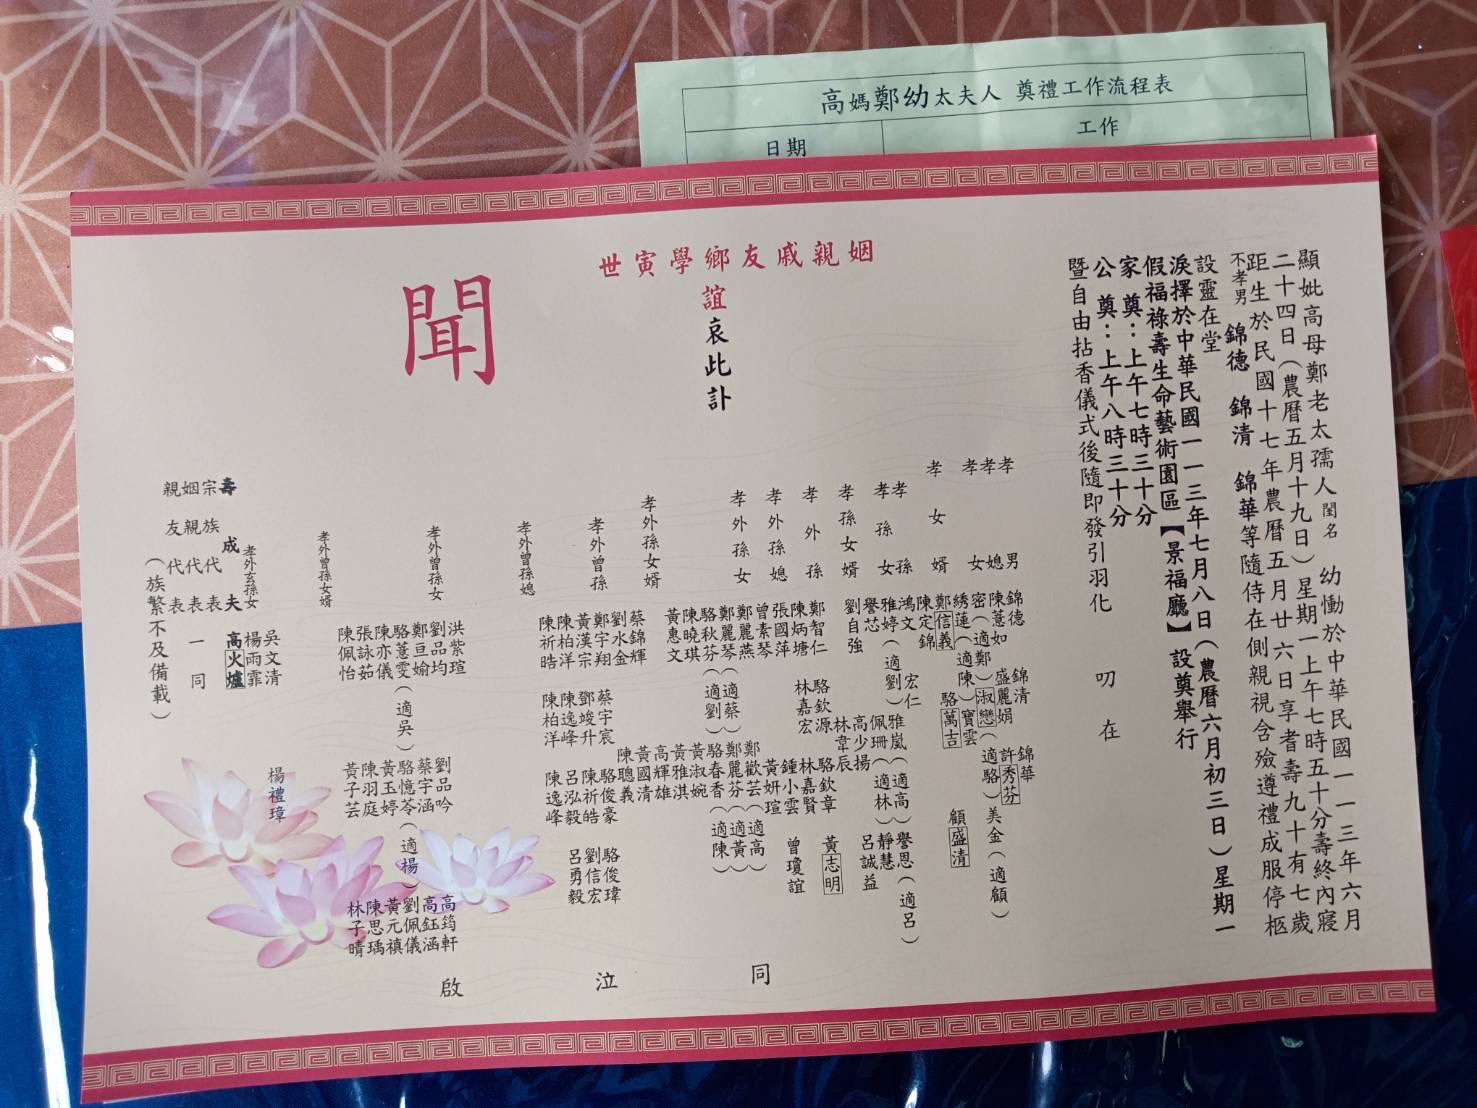 高媽鄭幼太夫人 奠禮工作流程表
日期
工作
顯妣高母鄭老太孺人閨名 幼慟於中華民國一一三年六月
二十四日(農曆五月十九日)星期一上午七時五十分壽終內寢
距生於民國十七年農曆五月廿六日享耆壽九十有七歲
不孝男 錦德 錦清 錦華等隨侍在側親視含殮遵禮成服停柩
設靈在堂
淚擇於中華民國一一三年七月八日(農曆六月初三日)星期一
假福祿壽生命藝術園區【景福廳】設奠舉行
家奠:上午七時三十分
公奠:上午八時三十分
暨自由拈香儀式後隨即發引羽化 叨在
世寅學鄉友戚親姻
誼哀此訃
聞
孝男 錦德 錦清 錦華
孝媳 陳薏如 盛麗娟 許秀芬
孝女 密(適鄭) 淑戀(適駱) 美金(適顧)
綉蓮(適陳) 寶雲
孝女婿 鄭信義 駱萬吉 顧盛清
陳定錦
孝孫 鴻文 宏仁
孝孫女 雅婷(適劉) 雅嵐(適高) 譽恩(適呂)
譽芯 佩珊(適林) 靜慧
孝孫女婿 劉自強 高少揚 呂誠益
林韋辰
孝外孫 鄭智仁 駱欽源 駱欽章 黃志明
陳炳塘 林嘉宏 林嘉賢
孝外孫媳 張國萍 鍾小雲 曾瓊誼
曾素琴 黃妍瑄
孝外孫女 鄭麗燕 鄭歡芸(適高)
鄭麗琴(適蔡) 鄭麗芬(適黃)
駱秋芬(適劉) 駱春香(適陳)
陳曉琪 黃淑婉
黃惠文 黃雅淇
孝外孫女婿 蔡錦輝 高輝雄
劉水金 黃國清
陳聰義
孝外曾孫 鄭宇翔 蔡宇宸 駱俊豪 駱俊瑋
黃漢宗 鄧竣升 陳祈皓 劉信宏
陳柏洋 陳逸峰 呂泓毅 呂勇毅
陳祈晧 陳柏洋 陳逸峰
孝外曾孫媳
孝外曾孫女 洪紫瑄 劉品吟 高筠軒
劉品均 蔡宇涵 高鈺涵
鄭亘媮 駱憶苓(適楊) 劉佩儀
駱薏雯(適吳) 黃玉婷 黃元禛
陳亦儀 陳羽庭 陳思瑀
張詠茹 黃子芸 林子晴
陳佩怡
孝外曾孫女婿 吳文清 楊禮璋
孝外玄孫女 楊雨霏
壽成夫 高火爐
宗族代表
姻親代表
親友代表 一同
(族繁不及備載)
同泣啟